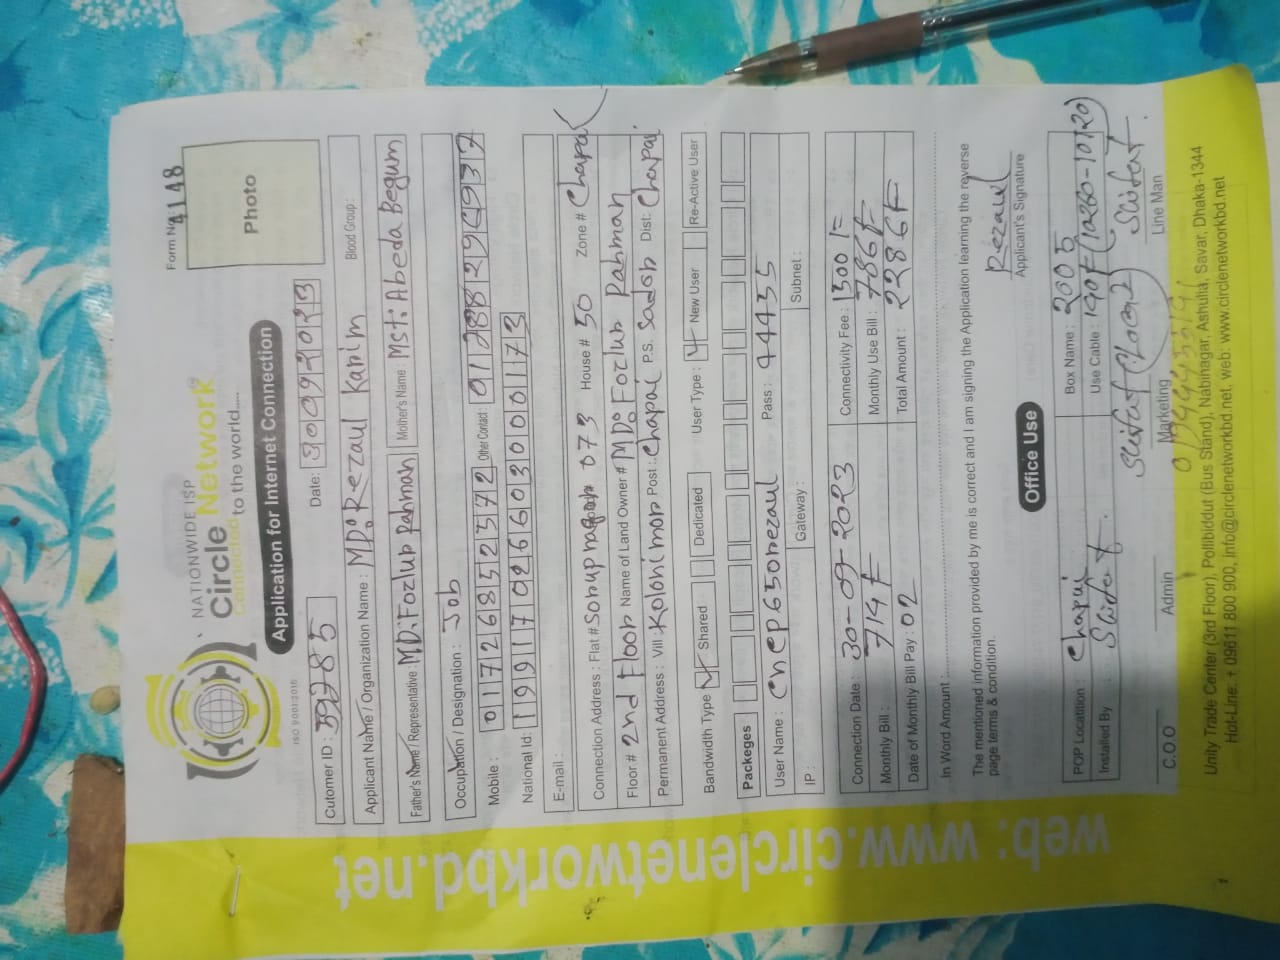 Form No: 4148
NATIONWIDE ISP
Circle Network
Connected to the world.....
ISO 9001:2015
Photo
Application for Internet Connection
Cutomer ID : 59285 Date: 30 09 2023
Applicant Name / Organization Name : MD: Rezaul Karim Blood Group:
Father's Name / Representative : MD: Fozlur Rahman Mother's Name : Mst: Abeda Begum
Occupation / Designation : Job
Mobile : 01726852572 Other Contact:
National Id: 19917026603000173
E-mail :
Connection Address : Flat # 073 House # 50 Zone # Chapai
Floor # 2nd Floor Name of Land Owner # MD: Fozlur Rahman
Permanent Address : Vill: Kolonimor Post : Chapai P.S. Sador Dist: Chapai
Bandwidth Type Shared Dedicated User Type : New User Re-Active User
Packeges
User Name : Pass : 44455
IP : Gateway : Subnet :
Connection Date : 30-09-2023 Connectivity Fee : 1500 F
Monthly Bill : 714 F Monthly Use Bill : 786 F
Date of Monthly Bill Pay : 02 Total Amount : 2286 F
In Word Amount :
The mentioned information provided by me is correct and I am signing the Application learning the reverse
page terms & condition.
Rezaul
Applicant's Signature
Office Use
POP Locatition : Chapai Box Name : 2005
Installed By : Use Cable : 190F (10280-10120)
C.O.O Admin Marketing Line Man
Unity Trade Center (3rd Floor), Pollibiddut (Bus Stand), Nabinagar, Ashulia, Savar, Dhaka-1344
Hot-Line: + 09611 800 900, info@circlenetworkbd.net, web: www.circlenetworkbd.net
web: www.circlenetworkbd.net